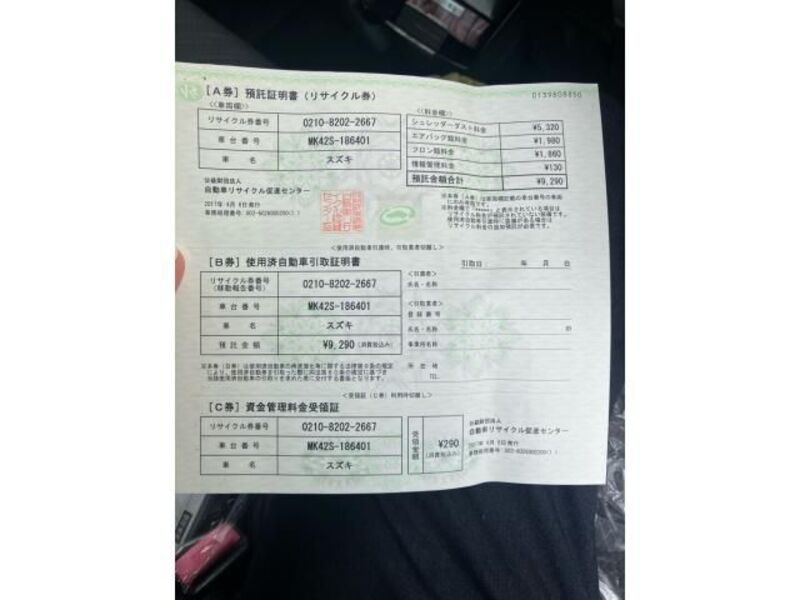 [A券] 預託証明書（リサイクル券）
0139808850
≪車両欄≫
リサイクル券番号 0210-8202-2667
車台番号 MK42S-186401
車名 スズキ
≪料金欄≫
シュレッダーダスト料金 ¥5,320
エアバッグ類料金 ¥1,980
フロン類料金 ¥1,860
情報管理料金 ¥130
預託金額合計 ¥9,290
公益財団法人
自動車リサイクル促進センター
2017年 4月 8日発行
<使用済自動車引渡時、引取業者切離し>
[B券] 使用済自動車引取証明書
引取日： 年 月 日
リサイクル券番号
(移動報告番号) 0210-8202-2667
車台番号 MK42S-186401
車名 スズキ
預託金額 ¥9,290 (消費税込み)
<引渡者>
氏名・名称
<引取業者>
登録番号
氏名・名称 印
事業所名称
所在地
TEL
<受領証（C券）利用時切離し>
[C券] 資金管理料金受領証
リサイクル券番号 0210-8202-2667
車台番号 MK42S-186401
車名 スズキ
受領金額 ¥290
(消費税込み)
公益財団法人
自動車リサイクル促進センター
2017年 4月 8日発行